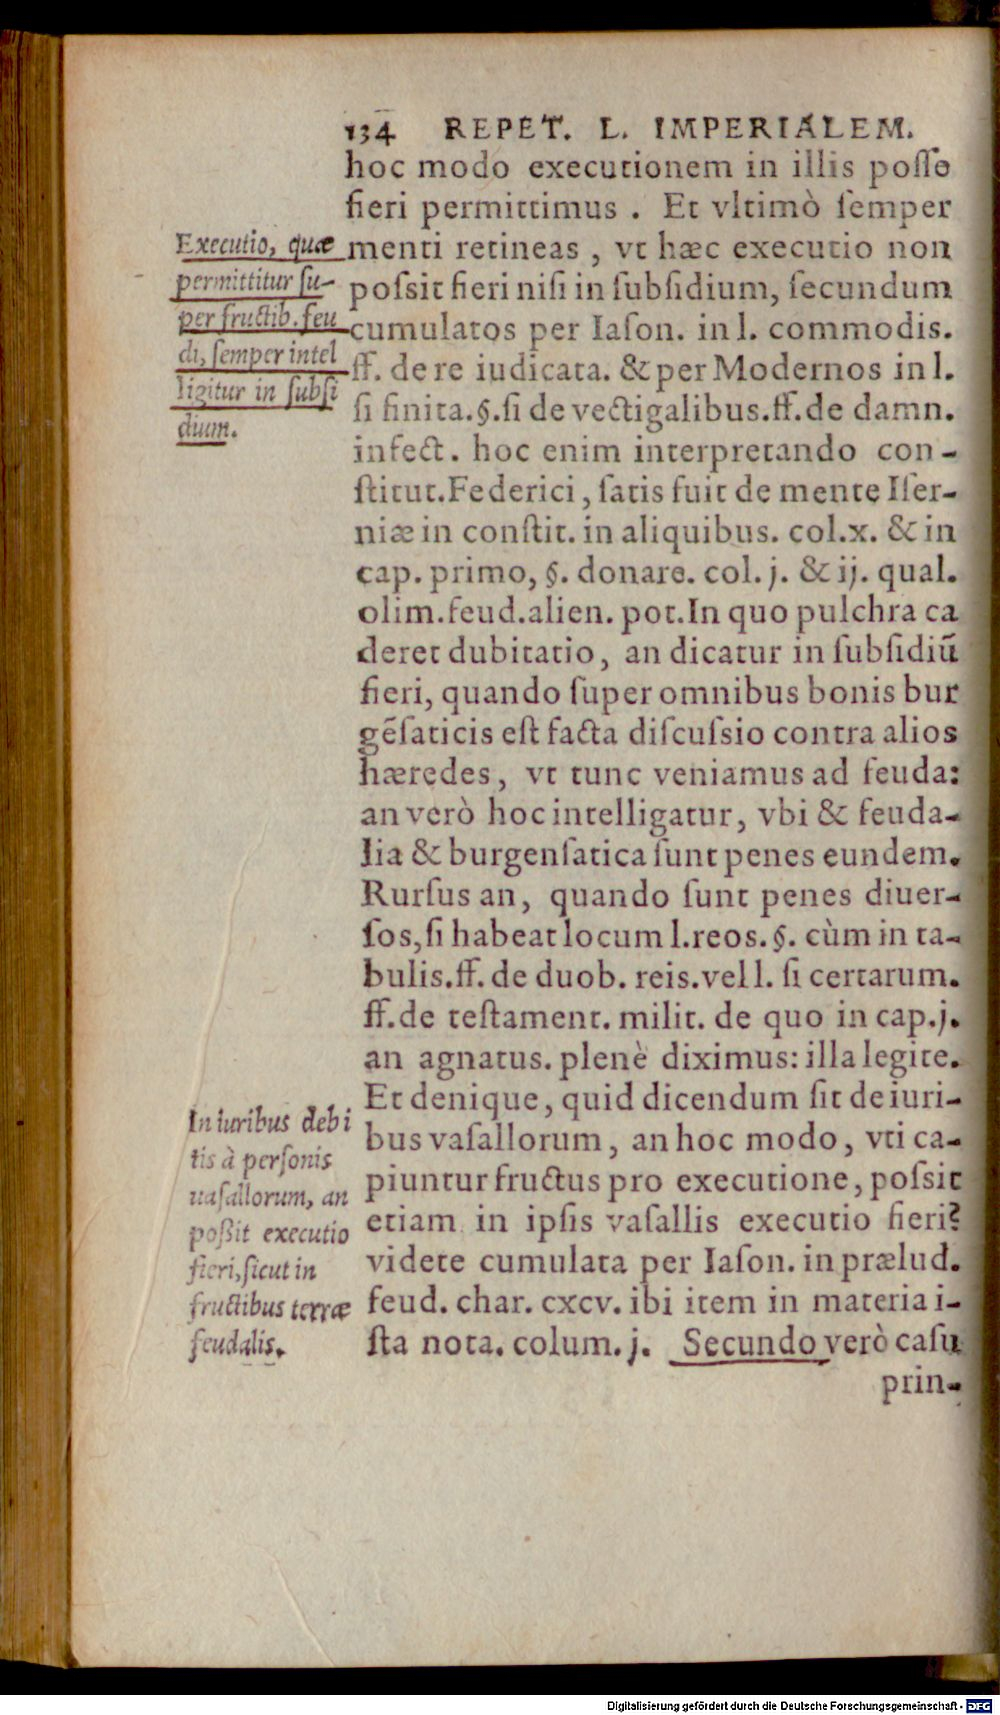 134 REPET. L. IMPERIALEM.
hoc modo executionem in illis poſſe
fieri permittimus . Et vltimò ſemper
menti retineas , vt hæc executio non
poſsit fieri niſi in ſubſidium, ſecundum
cumulatos per Iaſon. in l. commodis.
ff. de re iudicata. & per Modernos in l.
ſi finita.§.ſi de vectigalibus.ff.de damn.
infect. hoc enim interpretando con-
ſtitut.Federici, ſatis fuit de mente Iſer-
niæ in conſtit. in aliquibus. col.x. & in
cap. primo, §. donare. col. j. & ij. qual.
olim.feud.alien. pot.In quo pulchra ca
deret dubitatio, an dicatur in ſubſidiū
fieri, quando ſuper omnibus bonis bur
gēſaticis eſt facta diſcuſsio contra alios
hæredes, vt tunc veniamus ad feuda:
an verò hoc intelligatur, vbi & feuda-
lia & burgenſatica ſunt penes eundem.
Rurſus an, quando ſunt penes diuer-
ſos,ſi habeat locum l.reos.§. cùm in ta-
bulis.ff. de duob. reis.vel l. ſi certarum.
ff.de teſtament. milit. de quo in cap.j.
an agnatus. plenè diximus: illa legite.
Et denique, quid dicendum ſit de iuri-
bus vaſallorum, an hoc modo, vti ca-
piuntur fructus pro executione, poſsit
etiam in ipſis vaſallis executio fieri?
videte cumulata per Iaſon. in prælud.
feud. char. cxcv. ibi item in materia i-
ſta nota. colum. j. Secundo verò caſu
prin-
Executio, quæ
permittitur ſu-
per fructib. feu
di, ſemper intel
ligitur in ſubſi
dium.
In iuribus debi
tis à perſonis
uaſallorum, an
poßit executio
fieri, ſicut in
fructibus terræ
feudalis.
Digitalisierung gefördert durch die Deutsche Forschungsgemeinschaft - DFG